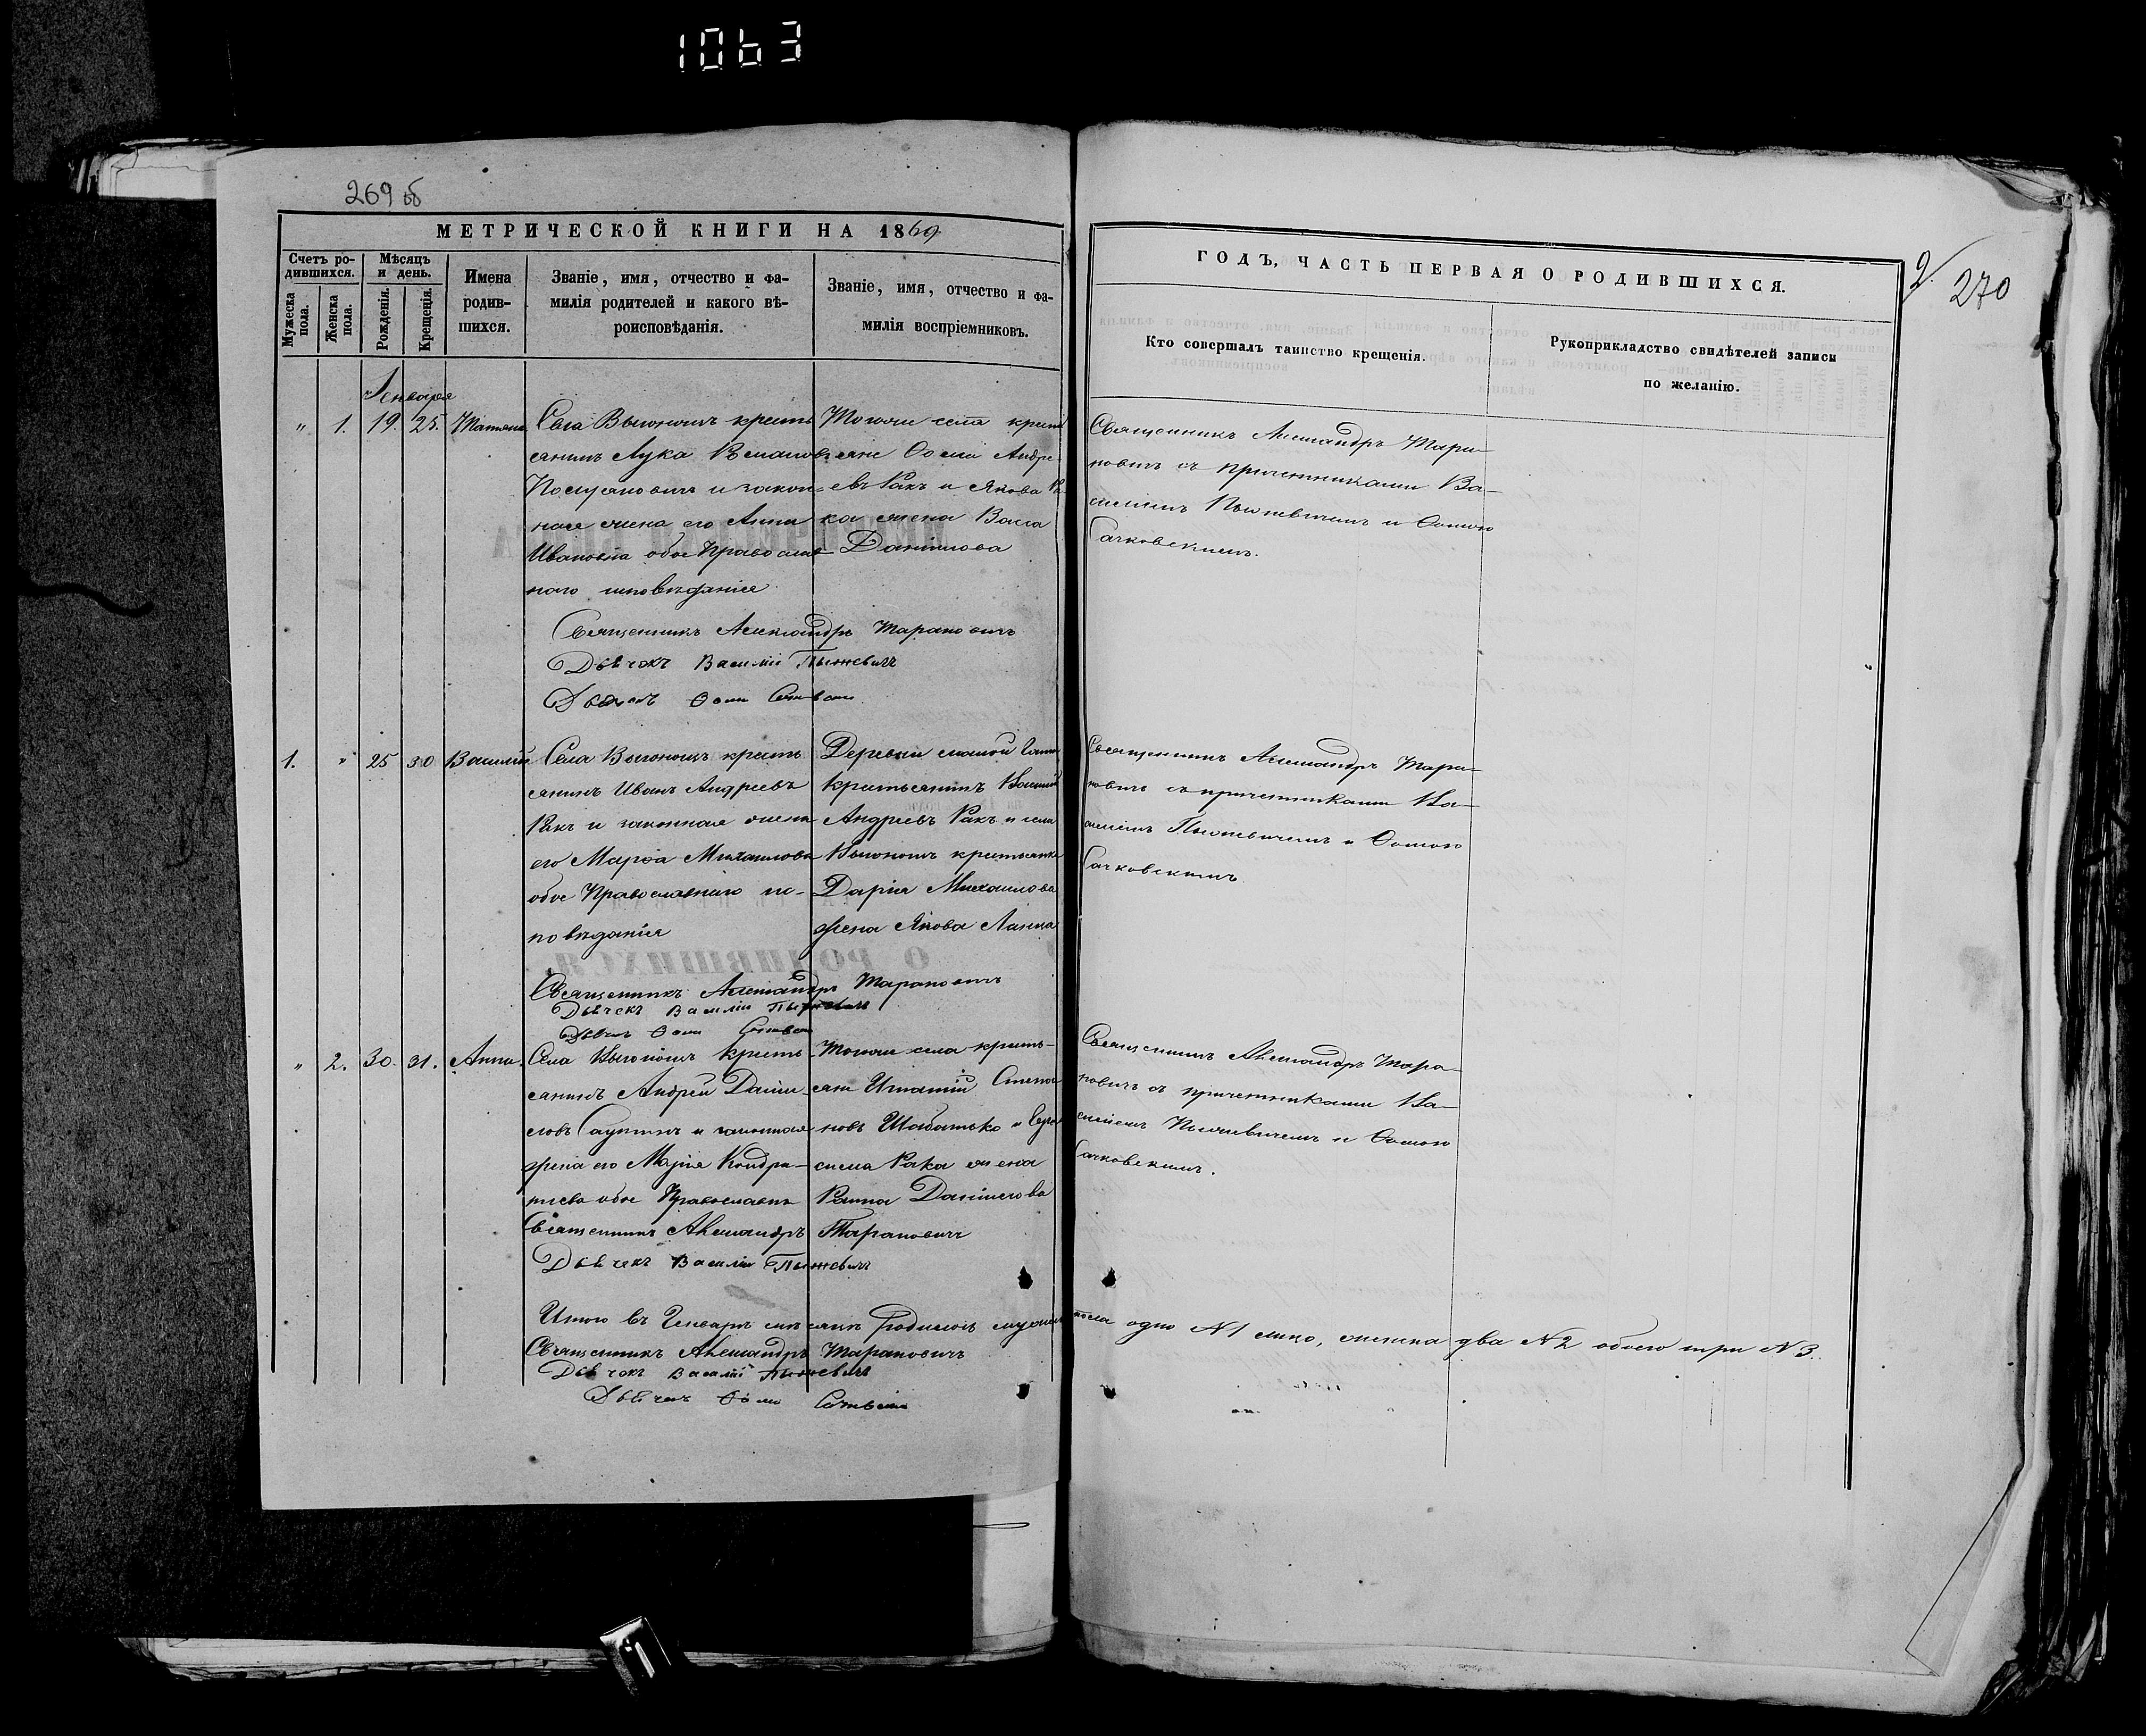 1063
269 об
МЕТРИЧЕСКОЙ КНИГИ НА 1869
ГОДЪ, ЧАСТЬ ПЕРВАЯ О РОДИВШИХСЯ.
2
270
Счетъ ро-
дившихся.
Мужеска
пола.
Женска
пола.
Мѣсяцъ
и день.
Рожденія.
Крещенія.
Имена
родив-
шихся.
Званіе, имя, отчество и фа-
милія родителей и какого вѣ-
роисповѣданія.
Званіе, имя, отчество и фа-
милія воспріемниковъ.
Кто совершалъ таинство крещенія.
Рукоприкладство свидѣтелей записи
по желанію.
Генваря
" 1. 19. 25. Татьяна
Села Выгонощъ кресть
янинъ Лука
и закон-
ная жена его Анна
Ивановна обое Православ-
наго исповѣданія
Тогоже села крест
яне Ѳома Андре-
евъ Ракъ и Якова Ра
ка жена Васса
Даніилова
Священникъ Александръ Тара-
новичъ съ причетниками Ва-
силіемъ Пыжевичемъ и Ѳомою
Сачковскимъ.
Священникъ Александръ Тарановичъ
Дьячокъ Василій Пыжевичъ
1. " 25 30 Василій
Села Выгонощъ кресть
янинъ Иванъ Андреевъ
Ракъ и законная жена
его Марѳа Михаилова
обое Православнаго ис-
повѣданія
Деревни
крестьянинъ Василій
Андреевъ Ракъ и села
Выгонощъ крестьянка
Дарія Михаилова
жена Якова
Священникъ Александръ Тара-
новичъ съ причетниками Ва-
силіемъ Пыжевичемъ и Ѳомою
Сачковскимъ
Священникъ Александръ Тарановичъ
Дьячекъ Василій Пыжевичъ
" 2. 30. 31. Анна.
Села Выгонощъ кресть-
янинъ Андрей Дани-
ловъ и законная
жена его Марія Кондра-
тіева обое Православн
Тогоже села кресть-
яне Игнатій Степа
новъ Шабатько и
Рака жена
Даніилова
Священникъ Александръ Тара-
новичъ съ причетниками Ва-
силіемъ Пыжевичемъ и Ѳомою
Сачковскимъ.
Священникъ Александръ Тарановичъ
Дьячекъ Василій Пыжевичъ
Итого въ Генварѣ мѣсяцѣ родилось мужеска пола одно №1 женска два №2 обоего три №3.
Священникъ Александръ Тарановичъ
Дьячокъ Василій Пыжевичъ